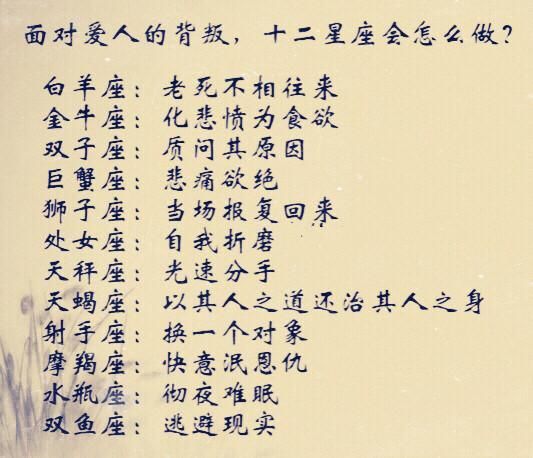 面对爱人的背叛，十二星座会怎么做？
白羊座：老死不相往来
金牛座：化悲愤为食欲
双子座：质问其原因
巨蟹座：悲痛欲绝
狮子座：当场报复回来
处女座：自我折磨
天秤座：光速分手
天蝎座：以其人之道还治其人之身
射手座：换一个对象
摩羯座：快意泯恩仇
水瓶座：彻夜难眠
双鱼座：逃避现实